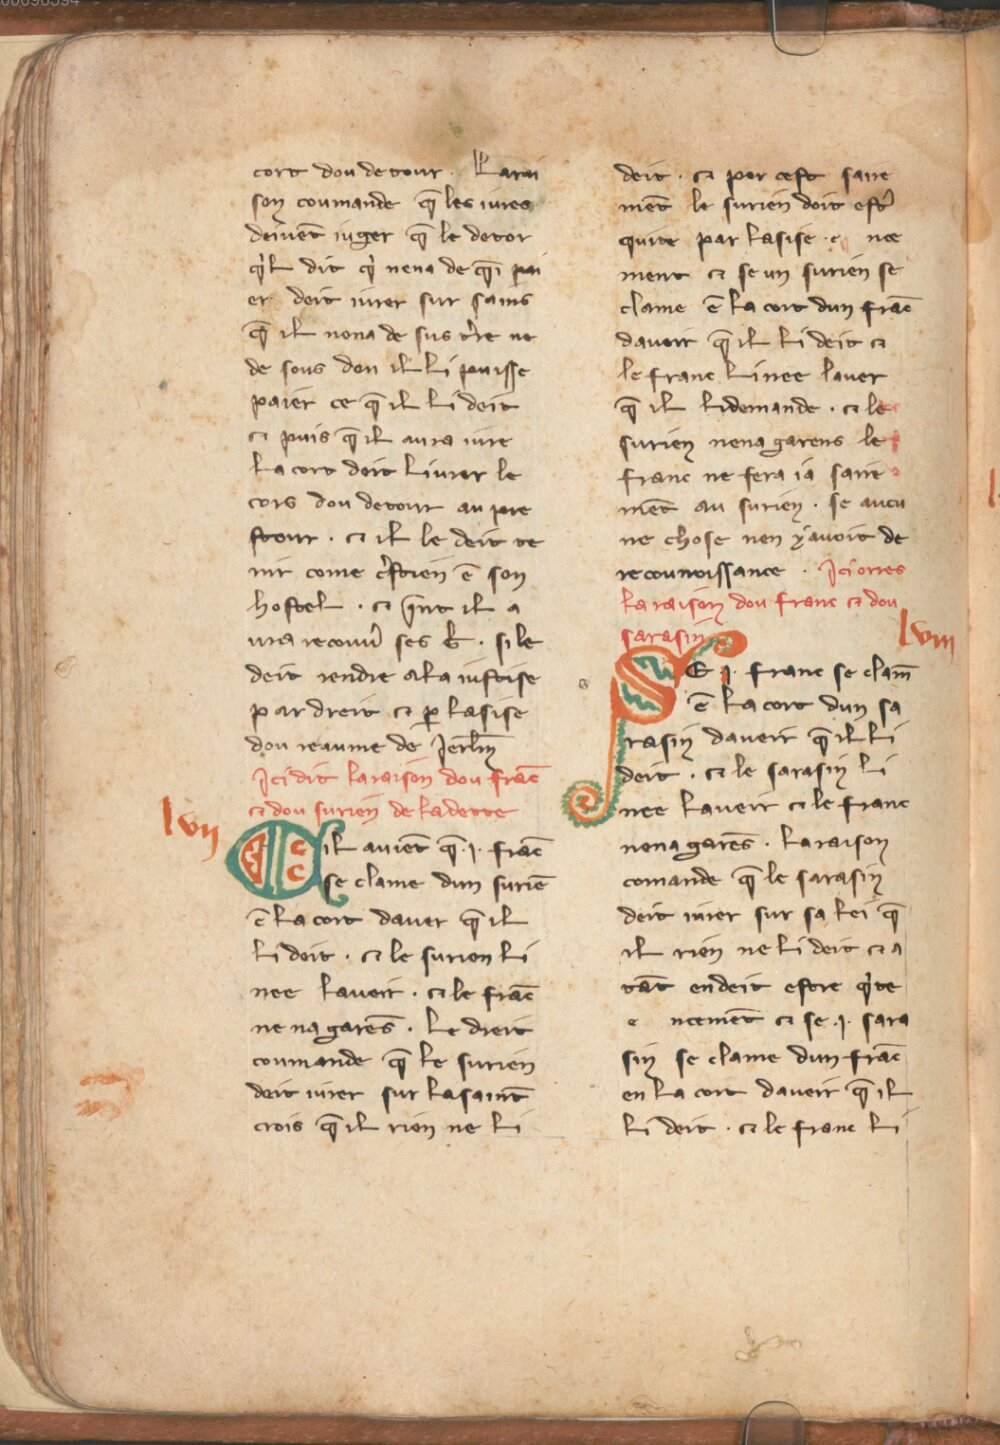 cort dou detour. La rai
son coumande q̄ les iures
deiuent iuger q̄ le detor
q̓l dit q̓ nena de q̄i pai
er deit iurer sur sains
q̄ il nena de sus t̓re ne
de sous don il li puisse
paier ce q̄ il li deit
et puis q̄ il aura iure
la cort deit liurer le
cors dou detour au pre
stour. et il le deit te
nir come c̓stien ē son
hostel. et q̄nt il a
ura recouu̓ ses b̄. si le
deit rendre a la iustise
par dreit et ꝑ lasise
dou reaume de Jerl̄m
Ici dit la raison dou frāc
et dou surien de la dette
lvii
Cil auiēt q̄ .i. frāc
se clame dun suriē
ē la cort dauer q̄ il
li deit. et le surien li
nee laueir. et le frāc
ne na garēs. Le dreit
coumande q̄ le surien
deit iurer sur la saint̄
crois q̄ il rien ne li
deit. et por cest saire
mēt le surien doit estr̓
quite par lasise. e nce
ment et se un surien se
clame ē la cort dun frāc
daueir q̄ il li deit et
le franc li nee lauer
q̄ il li demande. et le
surien nena garens le
franc ne fera ia saire
mēt au surien. se aucu
ne chose nen y auoit de
reconnoissance. Ici orres
la raison dou franc et dou
sarasin
lviii
SE .i. franc se clam̄
ē la cort dun sa
rasin daueir q̄ il li
deit. et le sarasin li
nee laueir et le franc
nena garēs. la raison
comande q̄ le sarasin
deit iurer sur sa lei q̄
il rien ne li deit et a
tāt en deit estre q̓te
e ncemēt et se .i. sara
sin se clame dun frāc
en la cort daueir q̄ il
li deit. et le franc li